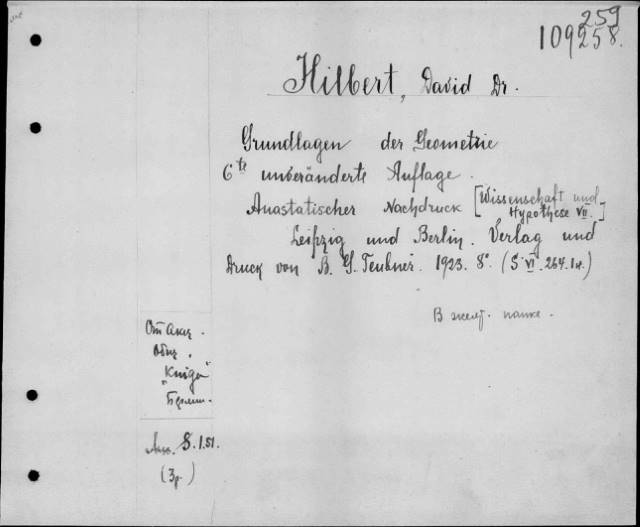 259
109258.
Hilbert, David Dr.
Grundlagen der Geometrie
6te unveränderte Auflage.
Anastatischer Nachdruck [Wissenschaft und
Hypothese VII.]
Leipzig und Berlin. Verlag und
Druck von B. G. Teubner. 1923. 8°. (S VI. 264. 1 .)
В желт. папке.
От Акц.
Общ.
"Книга"
Берлин.
8.1.51.
(3р.)